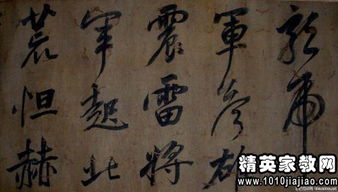 軍雄
震雷將
軍起北
荒怛赫
精英家教网
www.1010jiajiao.com